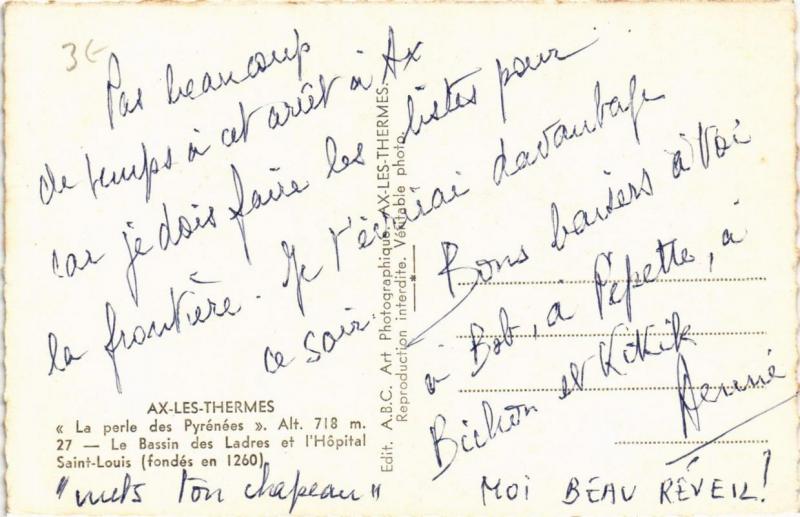 3€
Pas beaucoup
de temps à cet arrêt à Ax
car je dois faire les listes pour
la frontière. Je t'écrirai davantage
ce soir
Bons baisers à toi
à Bob, à Pépette, à
Bichon et Kikik
AX-LES-THERMES
« La perle des Pyrénées ». Alt. 718 m.
27 — Le Bassin des Ladres et l'Hôpital
Saint-Louis (fondés en 1260)
"mets ton chapeau"
MOI BEAU RÉVEIL!
Edit. A.B.C. Art Photographique. AX-LES-THERMES.
Reproduction interdite. Véritable photo.